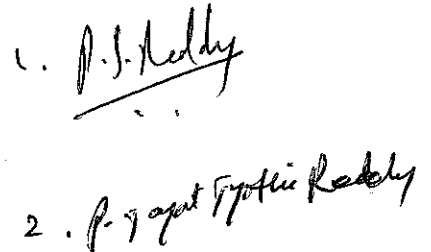 1. P.S. Reddy
2. P. Jagat Jyothi Reddy